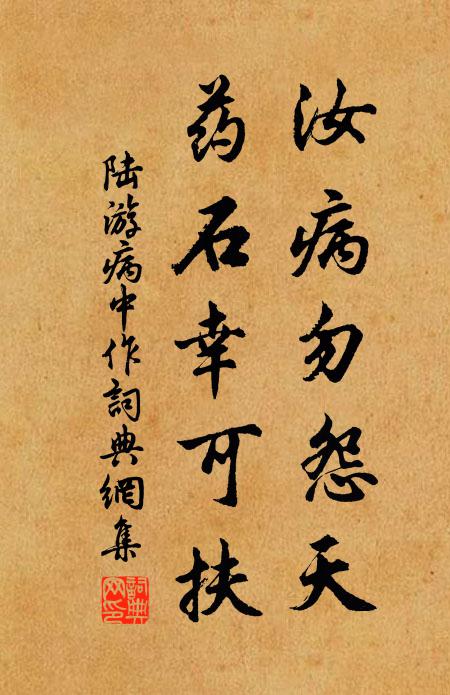 汝病勿怨天
药石幸可扶
陆游病中作词典網集
詞典網印